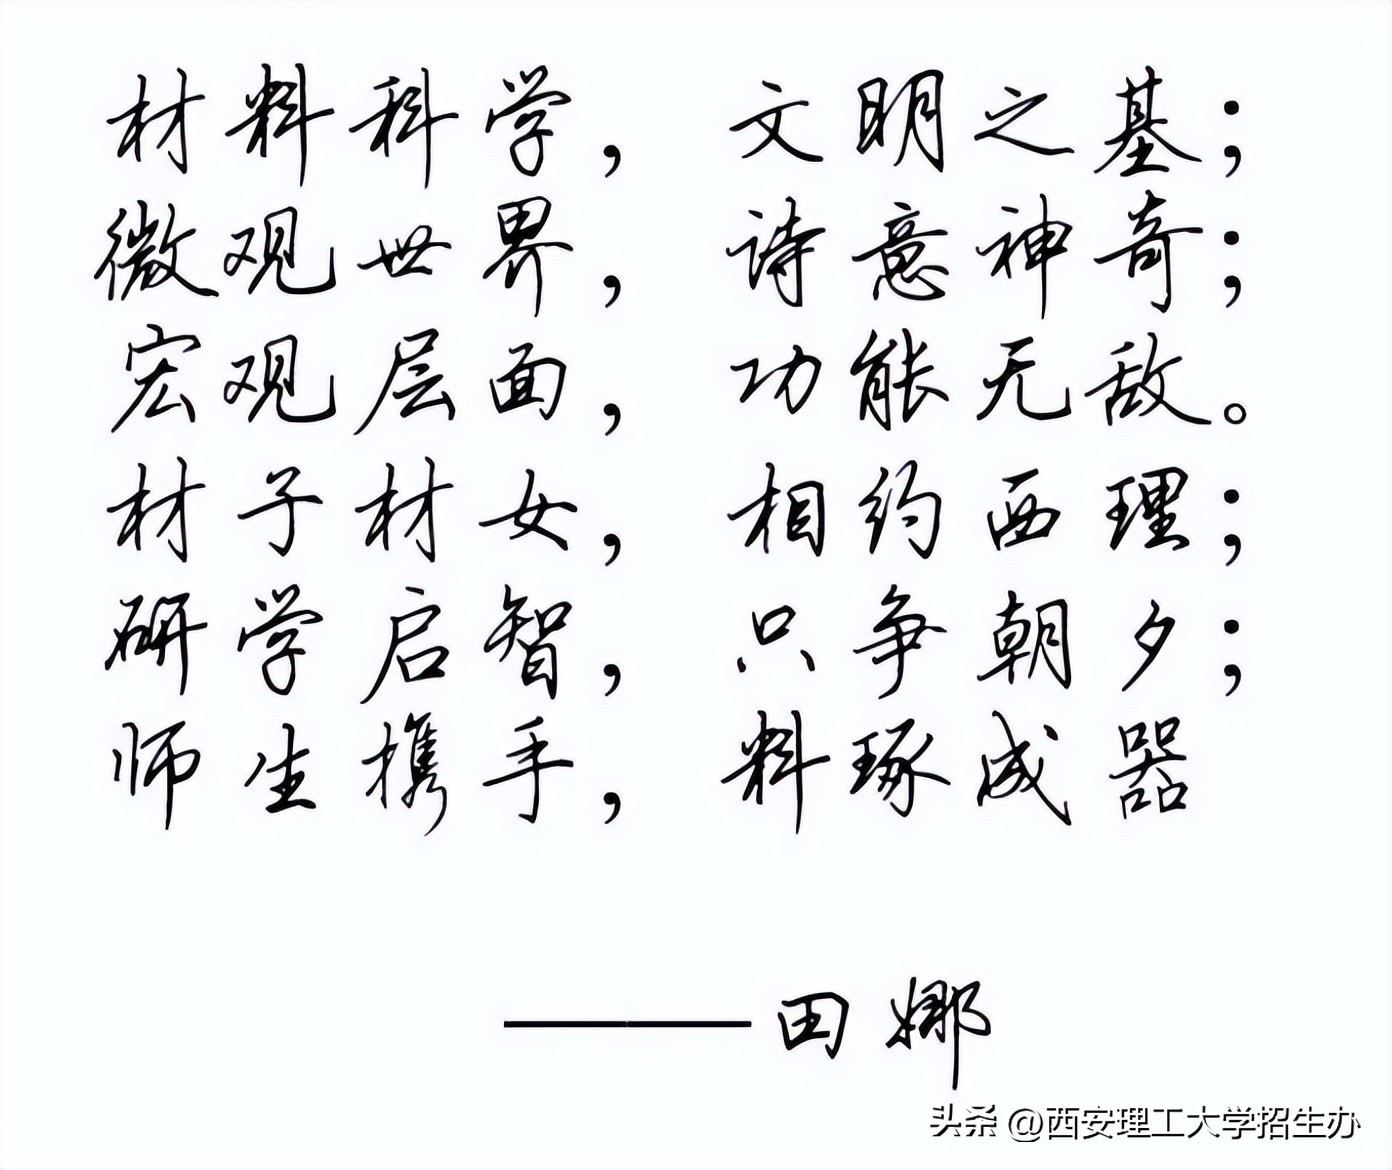 材料科学， 文明之基；
微观世界， 诗意神奇；
宏观层面， 功能无敌。
材子材女， 相约西理；
研学启智， 只争朝夕；
师生携手， 料琢成器
——田娜
头条 @西安理工大学招生办